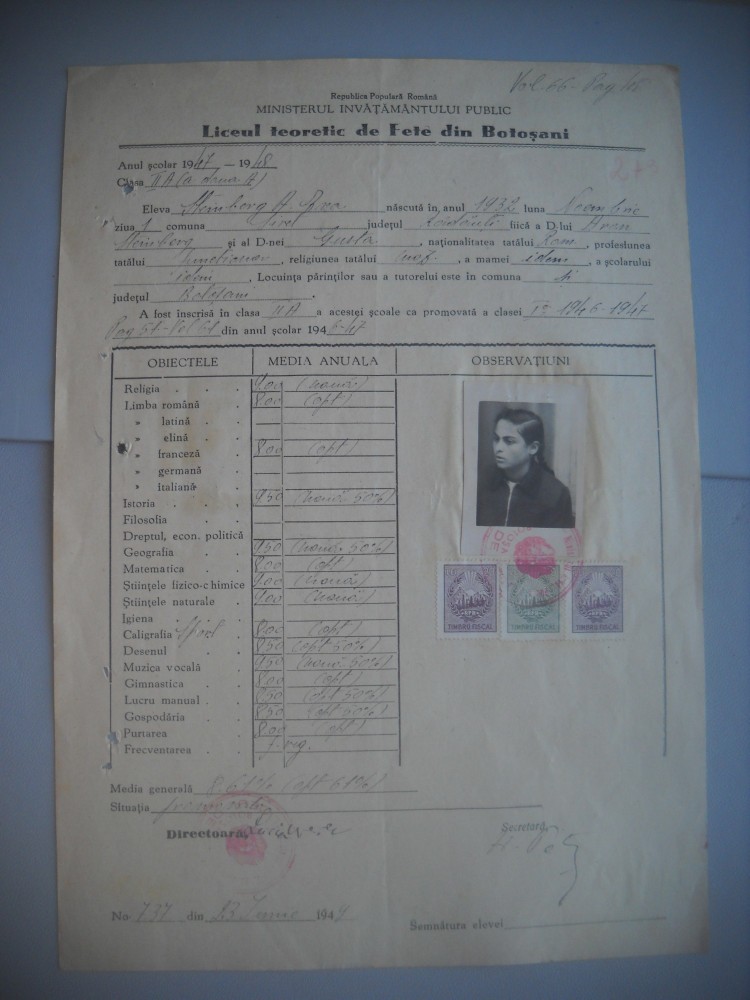 Vol. 66 - Pag.
Republica Populară Română
MINISTERUL INVĂȚĂMÂNTULUI PUBLIC
Liceul teoretic de Fete din Botoșani
Anul școlar 1947 — 1948
Clasa II A (a doua A)
Eleva Steinberg A. născută în anul 1932 luna Noembrie
ziua 1 comuna Siret județul Rădăuți fiică a D-lui Avram
Steinberg și al D-nei Gusta, naționalitatea tatălui Rom, profesiunea
tatălui funcționar, religiunea tatălui, a mamei idem, a școlarului
idem, Locuința părinților sau a tutorelui este în comuna
județul Botoșani.
A fost înscrisă în clasa II A a acestei școale ca promovată a clasei I 1946-1947
din anul școlar 1946-47
OBIECTELE MEDIA ANUALA OBSERVAȚIUNI
Religia . . . 9.00 (nouă)
Limba română . 8.00 (opt)
» latină . .
» elină . .
» franceză . 8.00 (opt)
» germană .
» italiană .
Istoria . . . 9.50 (nouă 50%)
Filosofia . .
Dreptul, econ. politică
Geografia . . 9.50 (nouă 50%)
Matematica . 8.00 (opt)
Științele fizico-chimice 9.00 (nouă)
Științele naturale . 9.00 (nouă)
Igiena . .
Caligrafia . 8.00 (opt)
Desenul . . 8.50 (opt 50%)
Muzica vocală . 9.50 (nouă 50%)
Gimnastica . . 8.00 (opt)
Lucru manual . . 8.50 (opt 50%)
Gospodăria . 8.50 (opt 50%)
Purtarea . . 8.00 (opt)
Frecventarea . . f. reg.
TIMBRU FISCAL TIMBRU FISCAL TIMBRU FISCAL
Media generală 8.61% (opt 61%)
Situația promovată
Directoară, Secretară,
No 737 din 23 Iunie 1949
Semnătura elevei